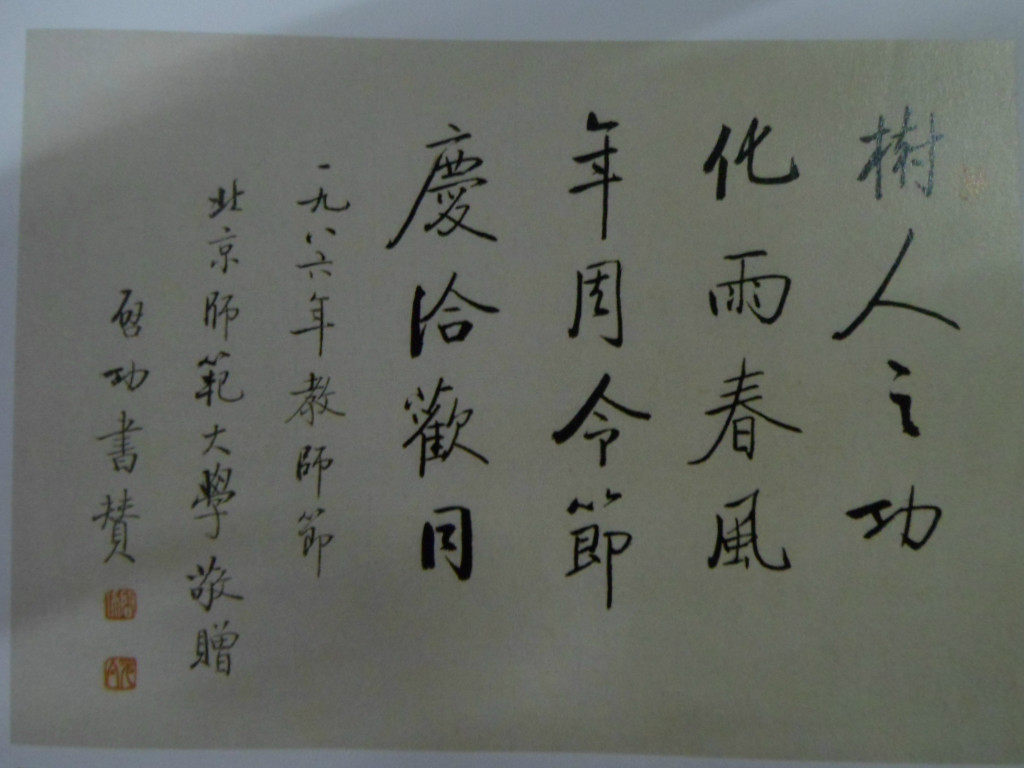 樹人之功
化雨春風
年周令節
慶洽歡同
一九八六年教師節
北京師範大學敬贈
啓功書贊